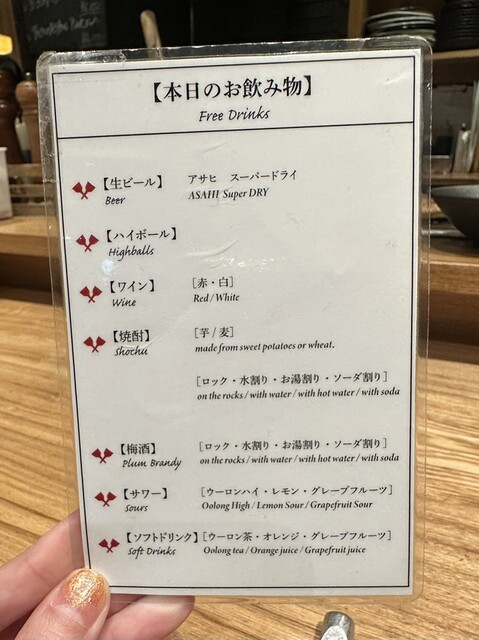 【本日のお飲み物】
Free Drinks
【生ビール】 アサヒ スーパードライ
Beer ASAHI Super DRY
【ハイボール】
Highballs
【ワイン】 [赤・白]
Wine Red / White
【焼酎】 [芋 / 麦]
Shochu made from sweet potatoes or wheat.
[ロック・水割り・お湯割り・ソーダ割り]
on the rocks / with water / with hot water / with soda
【梅酒】 [ロック・水割り・お湯割り・ソーダ割り]
Plum Brandy on the rocks / with water / with hot water / with soda
【サワー】 [ウーロンハイ・レモン・グレープフルーツ]
sours Oolong High / Lemon Sour / Grapefruit Sour
【ソフトドリンク】 [ウーロン茶・オレンジ・グレープフルーツ]
Soft Drinks Oolong tea / Orange juice / Grapefruit juice